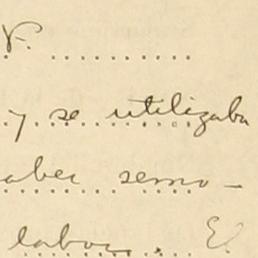 F.
y se utilizaba
aber semo-
labor. E